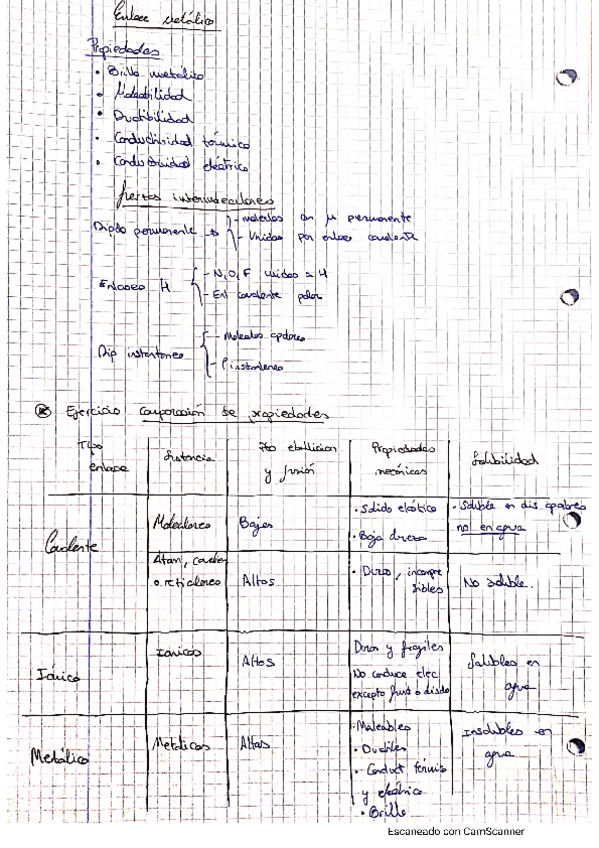 Enlace metálico
Propiedades
• Brillo metálico
• Maleabilidad
• Ductibilidad
• Conductividad térmica
• Conductividad eléctrica
fuerzas intermoleculares
Dipolo permanente → - moleculas con μ permanente
- Unidas por enlace covalente
Enlaces H - N, O, F unidos a H
- Enl covalente polar
Dip instantaneo - Moleculas apolares
- instantaneo
Ejercicio comparación de propiedades
Tipo enlace
Sustancia
Pto ebullicion y fusión
Propiedades mecánicas
Solubilidad
Covalente
Moleculares
Bajos
• Solido elástico
• Baja dureza
• Soluble en dis apolares
no en agua
Atom, covalen
o reticulares
Altos
• Duros, incompre
sibles
No soluble.
Iónico
Ionicos
Altos
Duros y fragiles
No conduce elec
excepto fund o disolu
Solubles en
agua
Metálico
Metalicas
Altas
• Maleables
• Ductiles
• Conduct térmica
y eléctrica
• Brillo
Insolubles en
agua
Escaneado con CamScanner